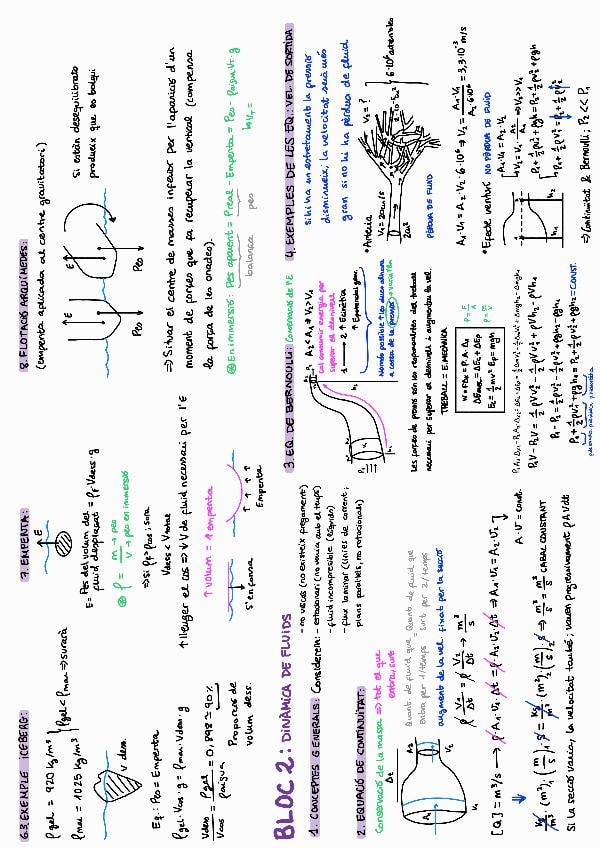 6.3. EXEMPLE ICEBERG:
ρgel = 920 kg/m³
ρmar = 1025 kg/m³
ρgel < ρmar ⇒ surarà
V des.
Eq.: Peso = Empenta
ρgel · Vcos · g = ρmar · Vdes · g
Vdesp / Vcos = ρgel / ρaigua = 0,898 ≃ 90%
Proporció de
volum des.
7. EMPENTA:
E
E = Pes del volum del
fluid desplaçat = ρF · Vdesp · g
⊛ ρ = m → peso
V → peso en immersió
⇒ Si ρf > ρcos; sura
Vdesp < Vtotal
↑ lleuger el cos ⇒ ↓ V de fluid necessari per l'E
↑ Volum = ↑ empenta
S'enfonsa
Empenta
8. FLOTACIÓ ARQUÍMEDES:
(empenta aplicada al centre gravitatori)
E
Peso
E
Peso
Si estàn desequilibrats
produeix que es bolqui
⇒ Situar el centre de masses inferior per l'aparició d'un
moment de forçes que fa recuperar la vertical (compensa
la força de les onades).
⊛ En immersió: Pes aparent = Preal - Empenta = Peso - ρaigua · Vc · g
balança
peso
BLOC 2: DINÀMICA DE FLUIDS
1. CONCEPTES GENERALS: Considerem:
- no viscós (no existeix fregament)
- estacionari (no varia amb el temps)
- fluid incompresible (líquids)
- flux laminar (línies de corrent;
plans paral·lels, no rotacionals)
2. EQUACIÓ DE CONTINUÏTAT:
Conservació de la massa ⇒ tot el que
entra, surt
Quant. de fluid que
entra per 1/temps
=
Quant. de fluid que
surt per 2/temps
augment de la vel. fixat per la secció
ρ V1/Δt = ρ V2/Δt → m³/s
[Q] = m³/s → ρ · A1 · V1 · Δt = ρ · A2 · V2 · Δt ⇒ A1 · V1 = A2 · V2
A · V = const.
kg/m³ · (m²)1 · (m/s)1 · s = kg/m³ · (m²)2 · (m/s)2 · s ⇒ m³/s = m³/s CABAL CONSTANT
Si la secció varia, la velocitat també; varien proporcionalment ρAVdt
3. EQ. DE BERNOULLI: Conservació de l'E
A2 < A1 ⇒ V2 > V1
Cal consumir energia per
superar el desnivell
1 → 2 ↑ E cinètica
↑ E potencial grav.
Les forçes de pressió són les responsables del treball
necessari per superar el desnivell i augmentar la vel.
TREBALL = E. MECÀNICA
W = F·Δx = P · A · Δx
ΔEmec = ΔEc + ΔEp
Ec = ½ m v² Ep = mgh
P = F/A
ρ = m/V
P1V - P2V = ½ρVv2² - ½ρVv1² + ρVgh2 - ρVgh1
P1 - P2 = ½ρv2² - ½ρv1² + ρgh2 - ρgh1
P1 + ½ρv1² + ρgh1 = P2 + ½ρv2² + ρgh2 = CONST.
4. EXEMPLES DE LES EQ.: VEL. DE SORTIDA
Si hi ha un estretament la pressió
disminueix; la velocitat serà més
gran si no hi ha pèrdues de fluid
*Artèria
V1 = 20cm/s
2cm²
V2 = ?
PÈRDUA DE FLUID
A1 · V1 = A2 · V2 · 6·10⁶ ⇒ V2 = A1 · V1 / A2 · 6·10⁶ = 3,3·10⁻³ m/s
*Efecte venturi NO PÈRDUA DE FLUID
A1 · V1 = A2 · V2
V2 = V1 · A1/A2 ⇒ V2 >> V1
P1 + ½ρv1² + ρgh = P2 + ½ρv2² + ρgh
P1 + ½ρv1² = P2 + ½ρv2²
⇒ Continuïtat & Bernoulli; P2 << P1